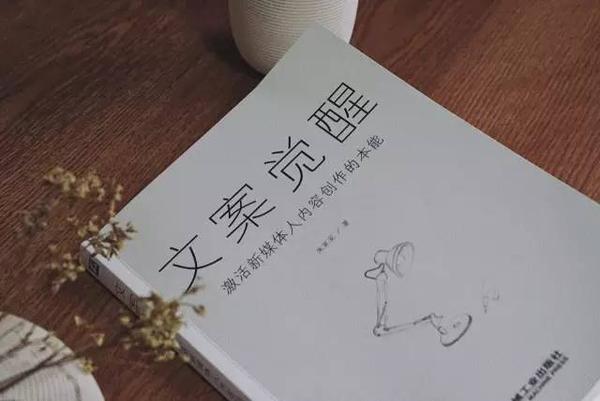 文案觉醒
激活新媒体人内容创作的本能
著
械工业出版社
MACHINE PRESS